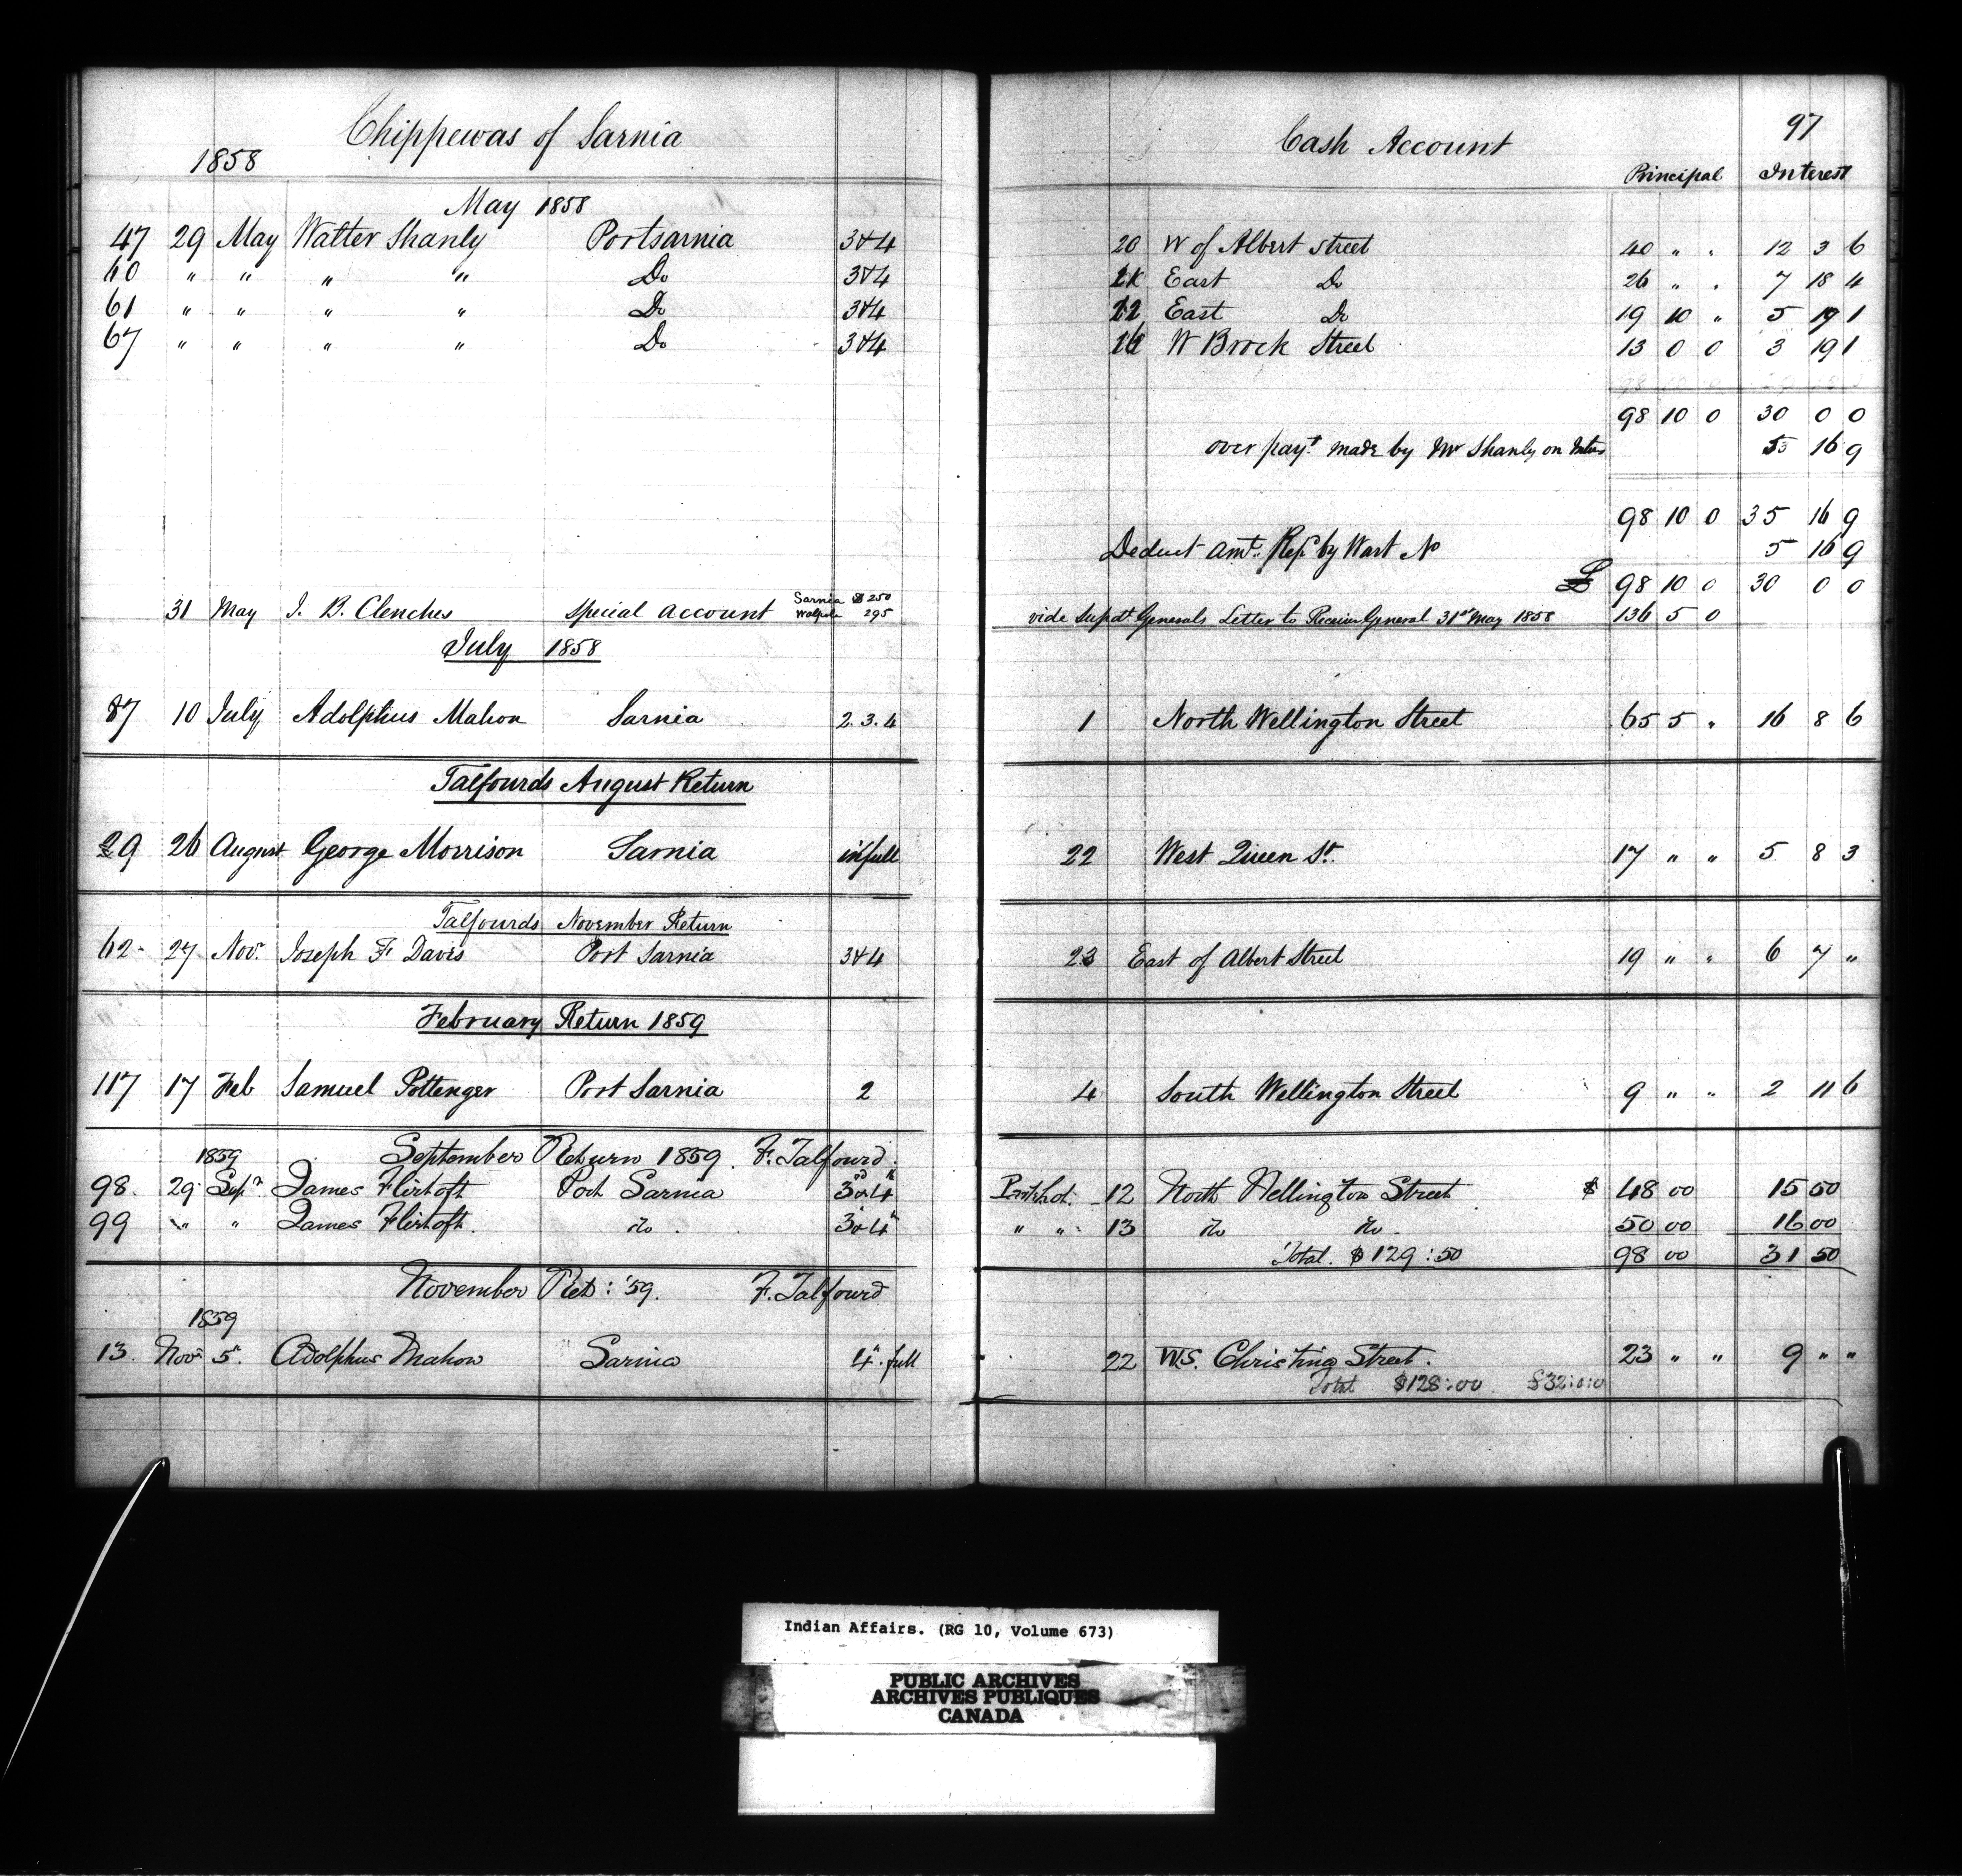 Chippewas of Sarnia
1858
May 1858
47 29 May Walter Shanly Portsarnia 3&4
60 " " " " Do 3&4
61 " " " " Do 3&4
67 " " " " Do 3&4
31 May J. B. Clenches special account Sarnia $250
Walpole 295
July 1858
87 10 July Adolphus Mahon Sarnia 2.3.4
Talfourds August Return
29 26 August George Morrison Sarnia in full
Talfourds November Return
62 - 27 Novr. Joseph F. Davis Port Sarnia 3&4
February Return 1859
117 17 Feb Samuel Pottenger Port Sarnia 2
September Return 1859. F. Talfourd.
1859
98. 29 Sepr. James Flintoft Port Sarnia 3d&4th
99 " " James Flintoft. do. 3&4
November Ret: '59. F. Talfourd
1859
13. Novr 5th. Adolphus Mahon Sarnia 4th. full
97
Cash Account
Principal Interest
20 W of Albert Street 40 " " 12 3 6
East Do 26 " " 7 18 4
22 East Do 19 10 " 5 19 1
16 W Brock Street 13 0 0 3 19 1
98 10 0 30 0 0
over payt. made by Mr Shanly on 5 16 9
98 10 0 35 16 9
Deduct amt. by Wart No 5 16 9
£ 98 10 0 30 0 0
vide Supdt. Generals Letter to Receiver General 31st May 1858 136 5 0
1 North Wellington Street 65 5 " 16 8 6
22 West Queen St. 17 " " 5 8 3
23 East of Albert Street 19 " " 6 7 "
4 South Wellington Street 9 " " 2 11 6
Lot 12 North Wellington Street $ 48 00 15 50
" " 13 do do. 50 00 16 00
Total. $129:50 98 00 31 50
22 W.S. Christina Street. 23 " " 9 " "
Total $128:00 £32:0:0
Indian Affairs. (RG 10, Volume 673)
PUBLIC ARCHIVES
ARCHIVES PUBLIQUES
CANADA